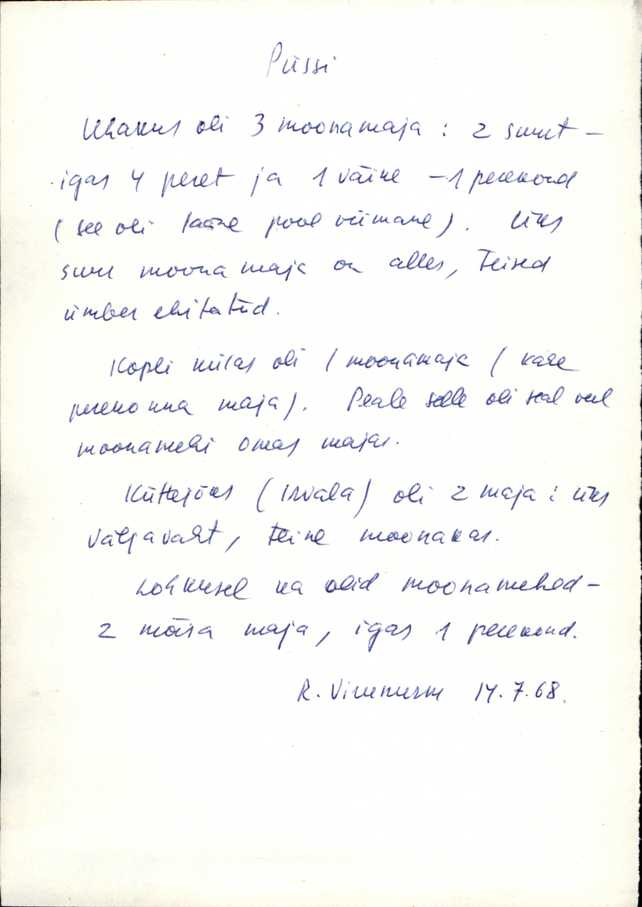 Püssi
Uhakus oli 3 moonamaja : 2 suurt –
igas 4 peret ja 1 väike – 1 perekond
( see oli lääne pool viimane ). Üks
suur moonamaja on alles, Teised
ümber ehitatud.
Kopli külas oli 1 moonamaja ( kahe
perekonna maja ). Peale selle oli seal veel
moonamehi omas majas.
Küttejõus ( ) oli 2 maja : üks
väljavaht, teine moonakas.
Lohkusel ka olid moonamehed –
2 mõisa maja, igas 1 perekond.
R. Viirmann 14.7.68.